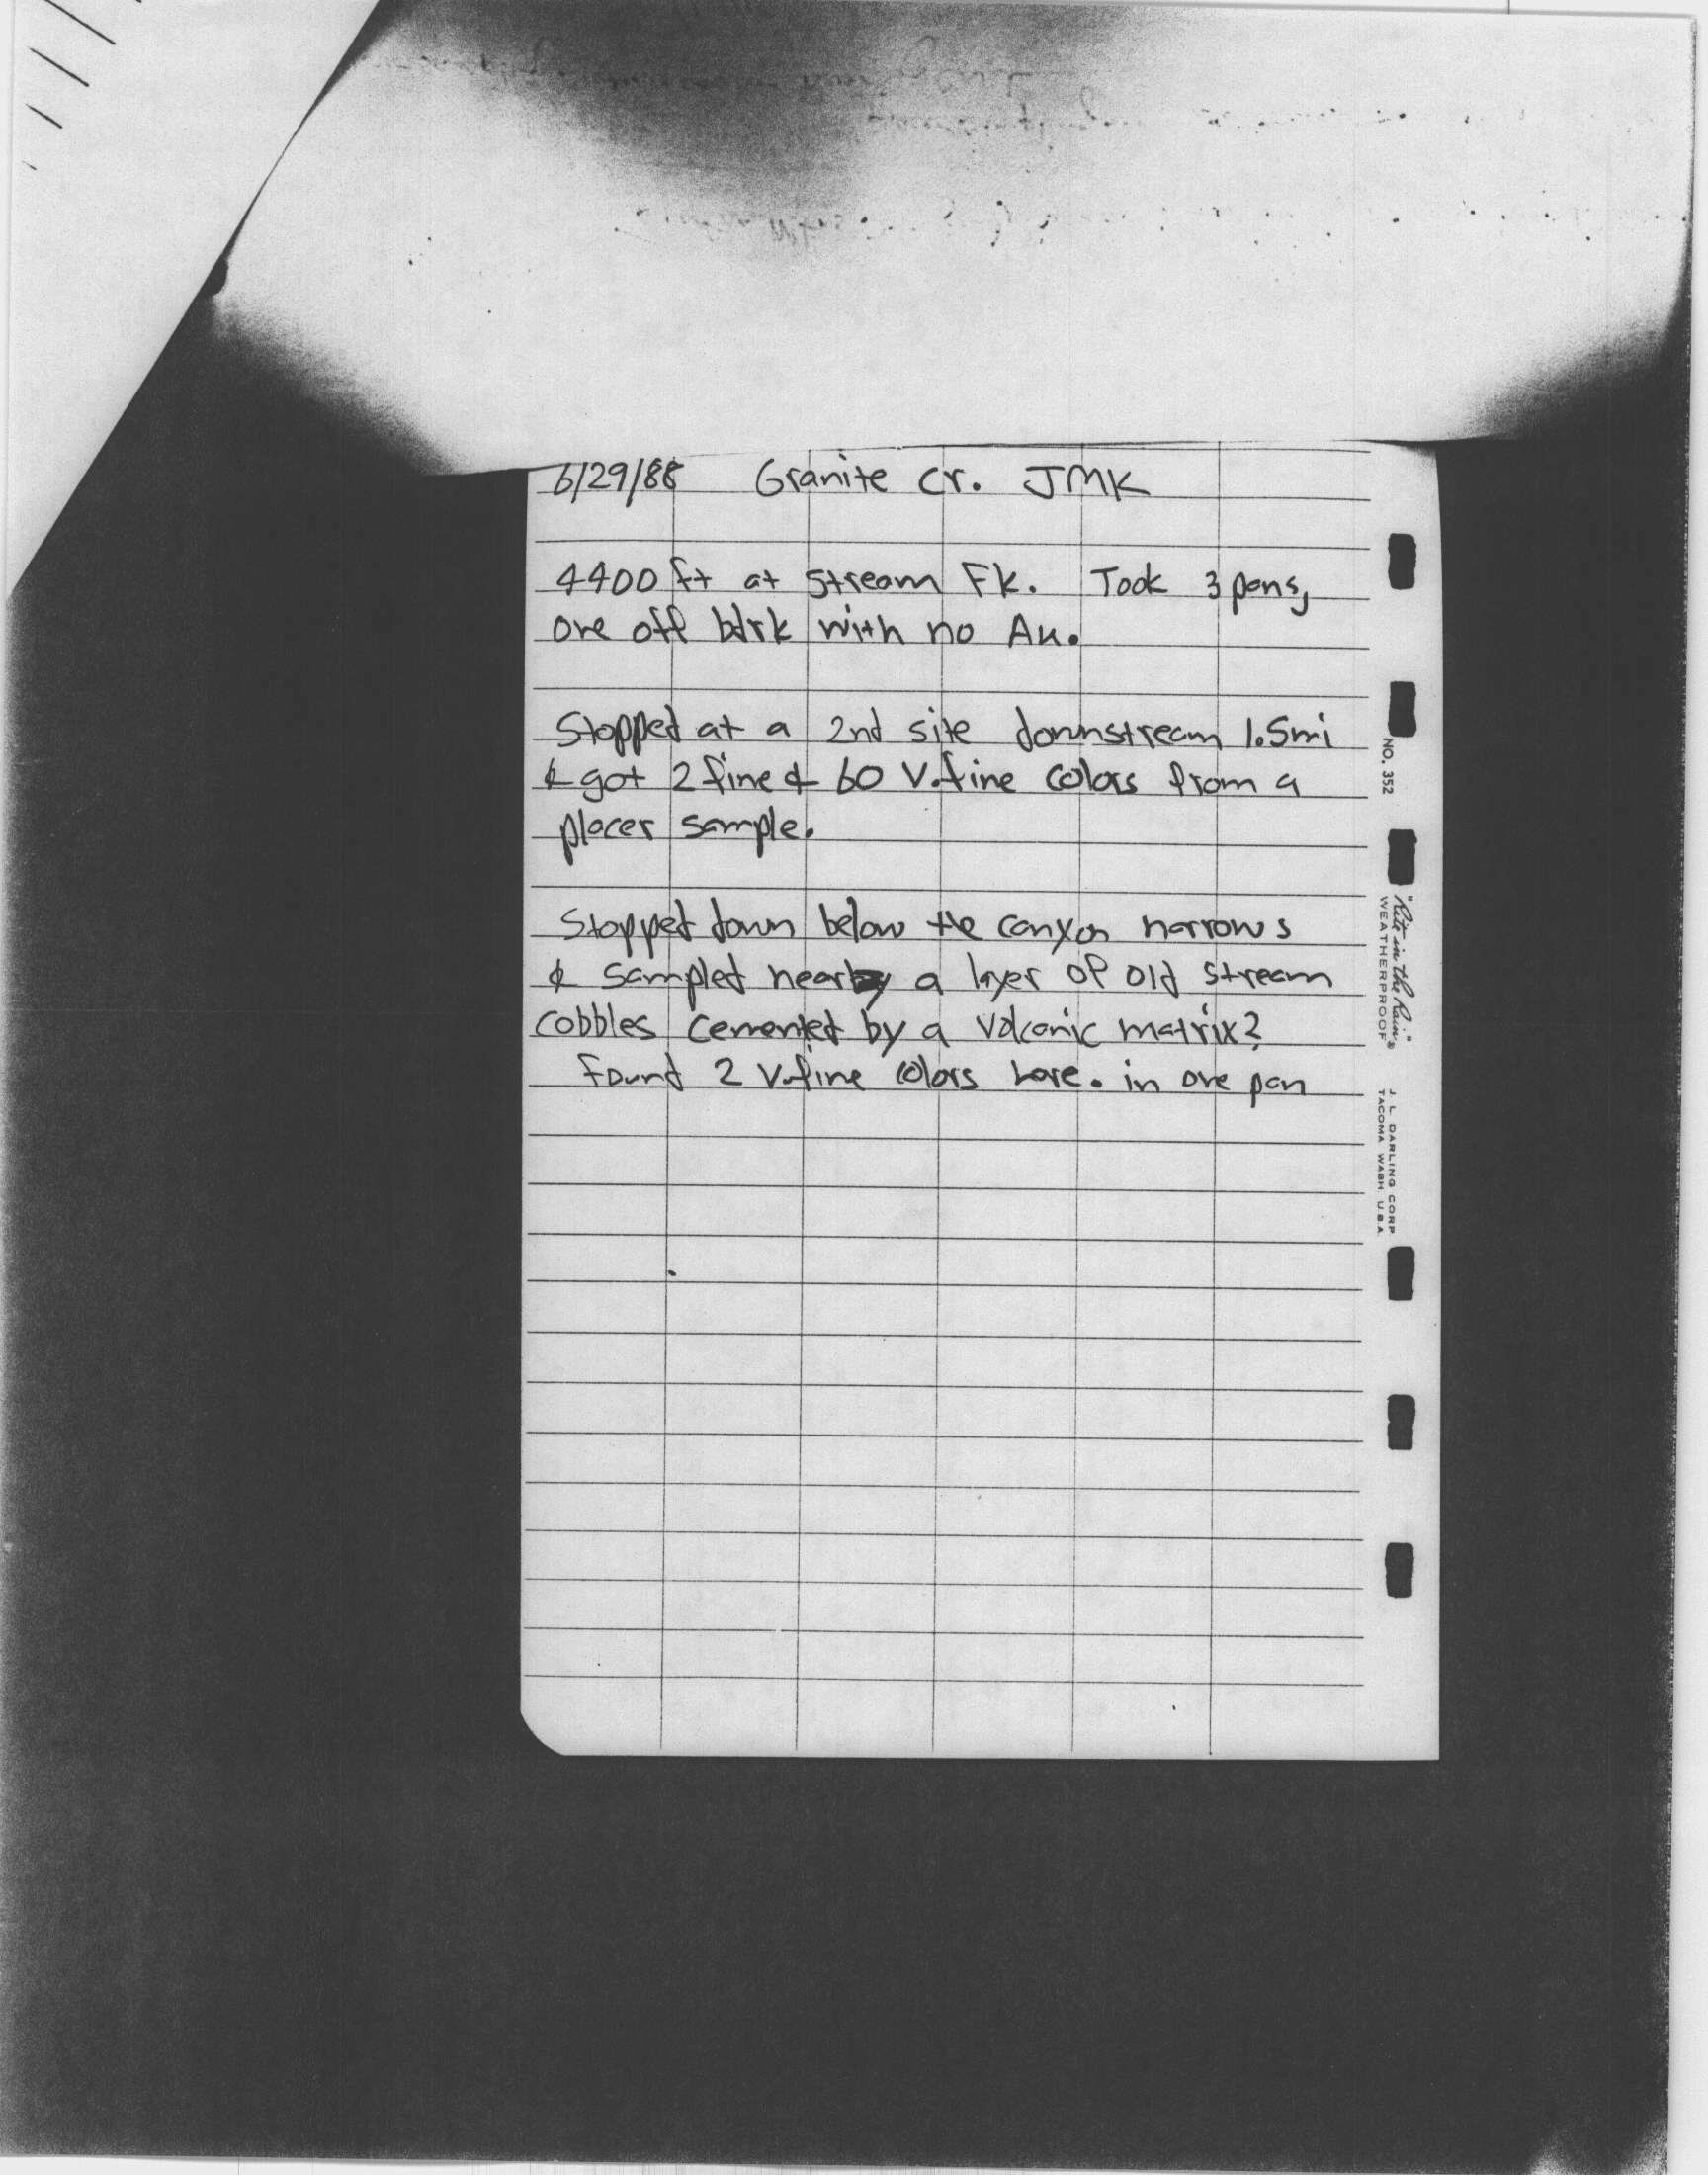 6/29/88 Granite Cr. JMK
4400 ft at stream Fk. Took 3 pans,
one off bdrk with no Au.
Stopped at a 2nd site downstream 1.5mi
& got 2 fine & 60 V.fine colors from a
placer sample.
Stopped down below the canyon narrows
& sampled near a layer of old stream
cobbles cemented by a volcanic matrix?
Found 2 V.fine colors here. in one pan
NO. 352
"Rite in the Rain"®
WEATHERPROOF
J. L. DARLING CORP
TACOMA WASH U.S.A